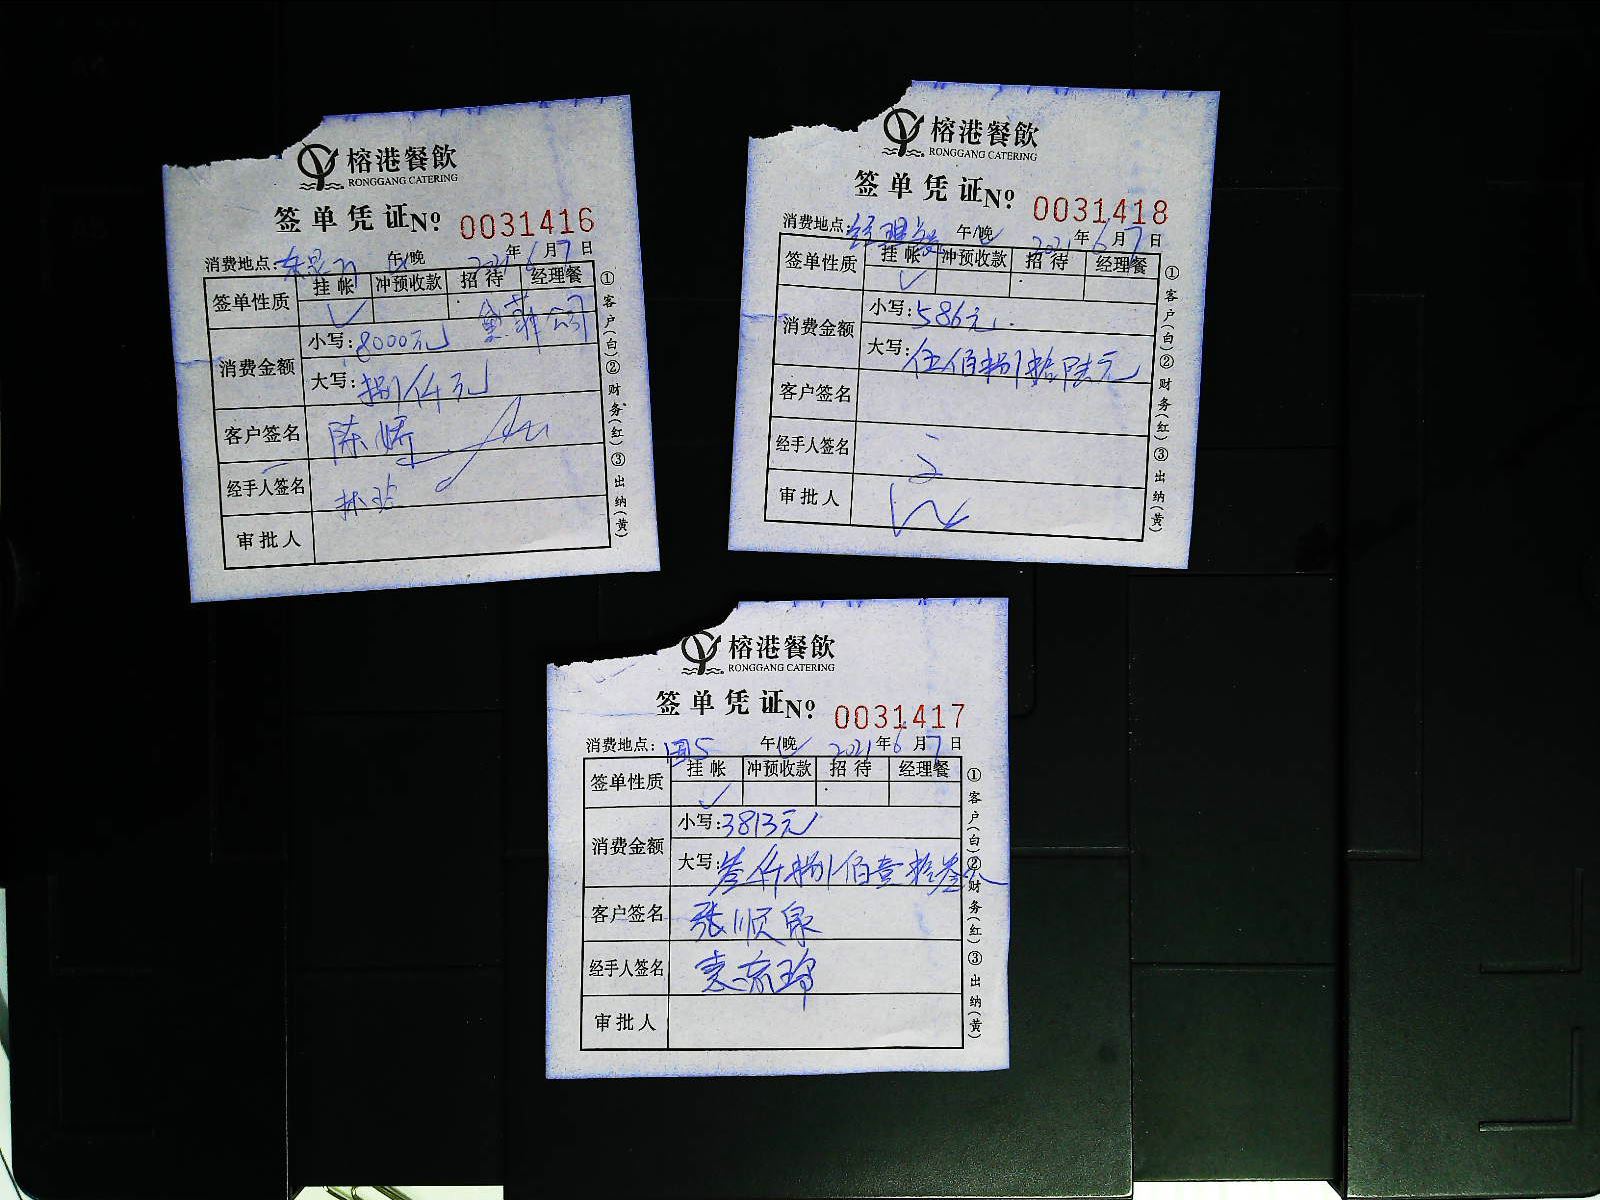 榕港餐飲
RONGGANG CATERING
签单凭证 Nº 0031416
消费地点: 午/晚 2021年6月7日
签单性质 挂帐 冲预收款 招待 经理餐
✓
消费金额 小写: 8000元
公司
大写: 捌仟元
客户签名 陈娇
经手人签名
审批人
①客户(白)②财务(红)③出纳(黄)
榕港餐飲
RONGGANG CATERING
签单凭证 Nº 0031418
消费地点: 经理餐 午/晚 2021年6月7日
签单性质 挂帐 冲预收款 招待 经理餐
✓
消费金额 小写: 586元
大写: 伍佰捌拾陆元
客户签名
经手人签名
审批人
①客户(白)②财务(红)③出纳(黄)
榕港餐飲
RONGGANG CATERING
签单凭证 Nº 0031417
消费地点: 国5 午/晚 2021年6月7日
签单性质 挂帐 冲预收款 招待 经理餐
✓
消费金额 小写: 3813元
大写: 叁仟捌佰壹拾叁元
客户签名 张顺泉
经手人签名
审批人
①客户(白)②财务(红)③出纳(黄)